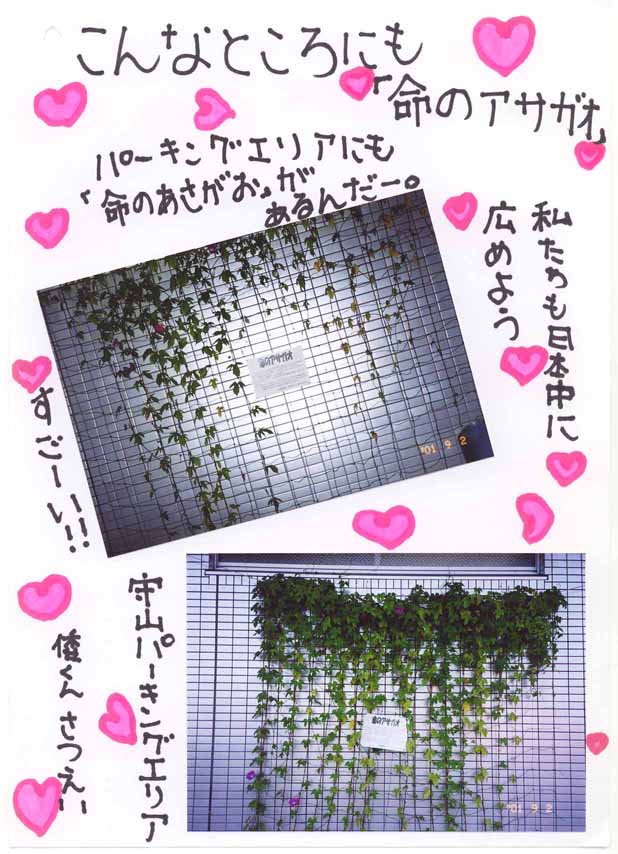 こんなところにも
「命のアサガオ」
パーキングエリアにも
「命のあさがお」が
あるんだー。
私たちも日本中に
広めよう
すごーい!!
命のアサガオ
'01 9 2
守山パーキングエリア
俊くん さつえい
命のアサガオ
'01 9 2